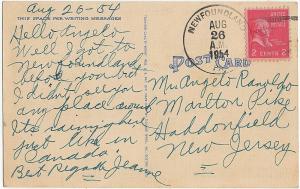 Aug 26-54
THIS SPACE FOR WRITING MESSAGES
Hello Angelo
Well I got to
Newfoundland
before you but
I didn't see
any place around
Its rainy here
just like in
Canada.
Best Regards Jeanne
POST CARD
NEWFOUNDLAND
AUG
26
A.M.
1954
2 CENTS 2
Mr. Angelo
Marlton Pike
Haddonfield
New Jersey